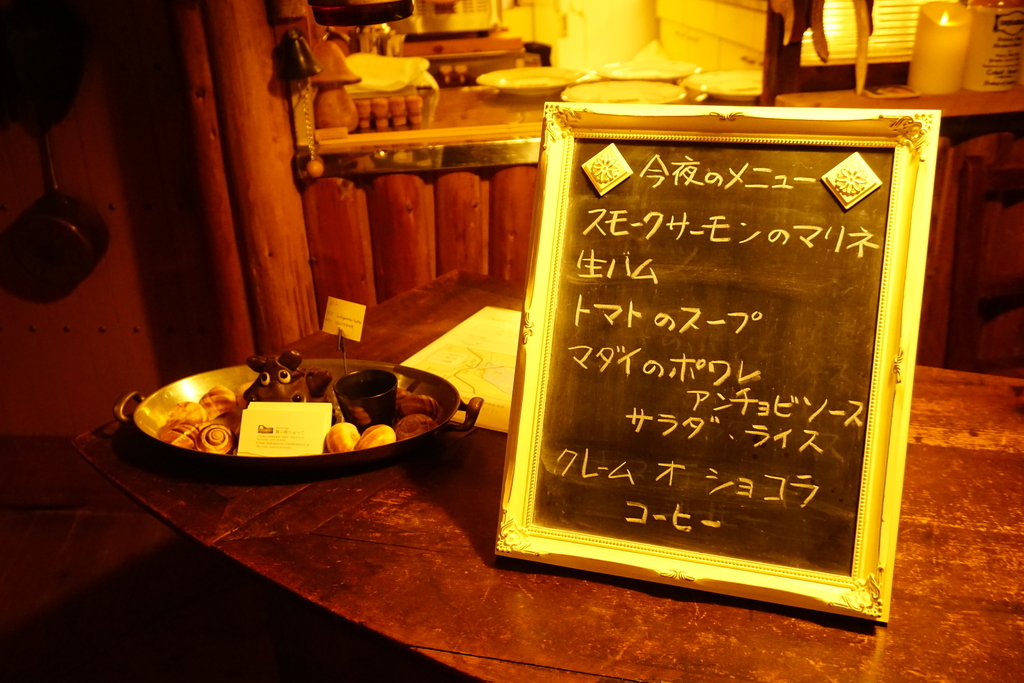 今夜のメニュー
スモークサーモンのマリネ
生ハム
トマトのスープ
マダイのポワレ
アンチョビソース
サラダ、ライス
クレーム オ ショコラ
コーヒー